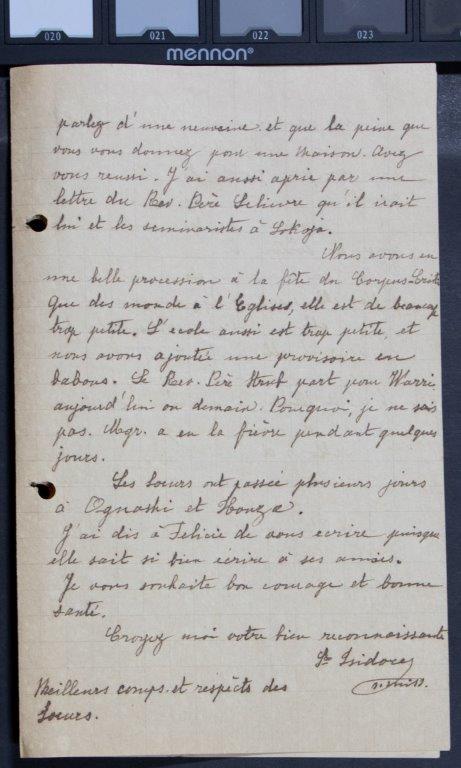 020 021 022 023
mennon®
parlez d'une neuvaine. et que la peine que
vous vous donnez pour une maison. Avez
vous reussi. J'ai aussi apris par une
lettre du Rev. Père Lelievre qu'il irait
lui et les seminaristes à Lokoja.
Nous avons eu
une belle procession à la fête du Corpus
Que des monde à l'Eglises, elle est de beaucoup
trop petite. L'ecole aussi est trop petite, et
nous avons ajoutée une provisoire en
babous. Le Rev. Père Strub part pour Warri
aujourd'hui ou demain. Pourquoi, je ne sais
pas. Mgr. a eu la fièvre pendant quelques
jours.
Les Soeurs ont passée plusieurs jours
à Ognashi et
J'ai dis à Felicie de vous ecrire puisque
elle sait si bien écrire à ses amies.
Je vous souhaite bon courage et bonne
santé.
Croyez moi votre bien reconnaissante
Sr Isidore
Meilleurs comps. et respècts des
Soeurs.